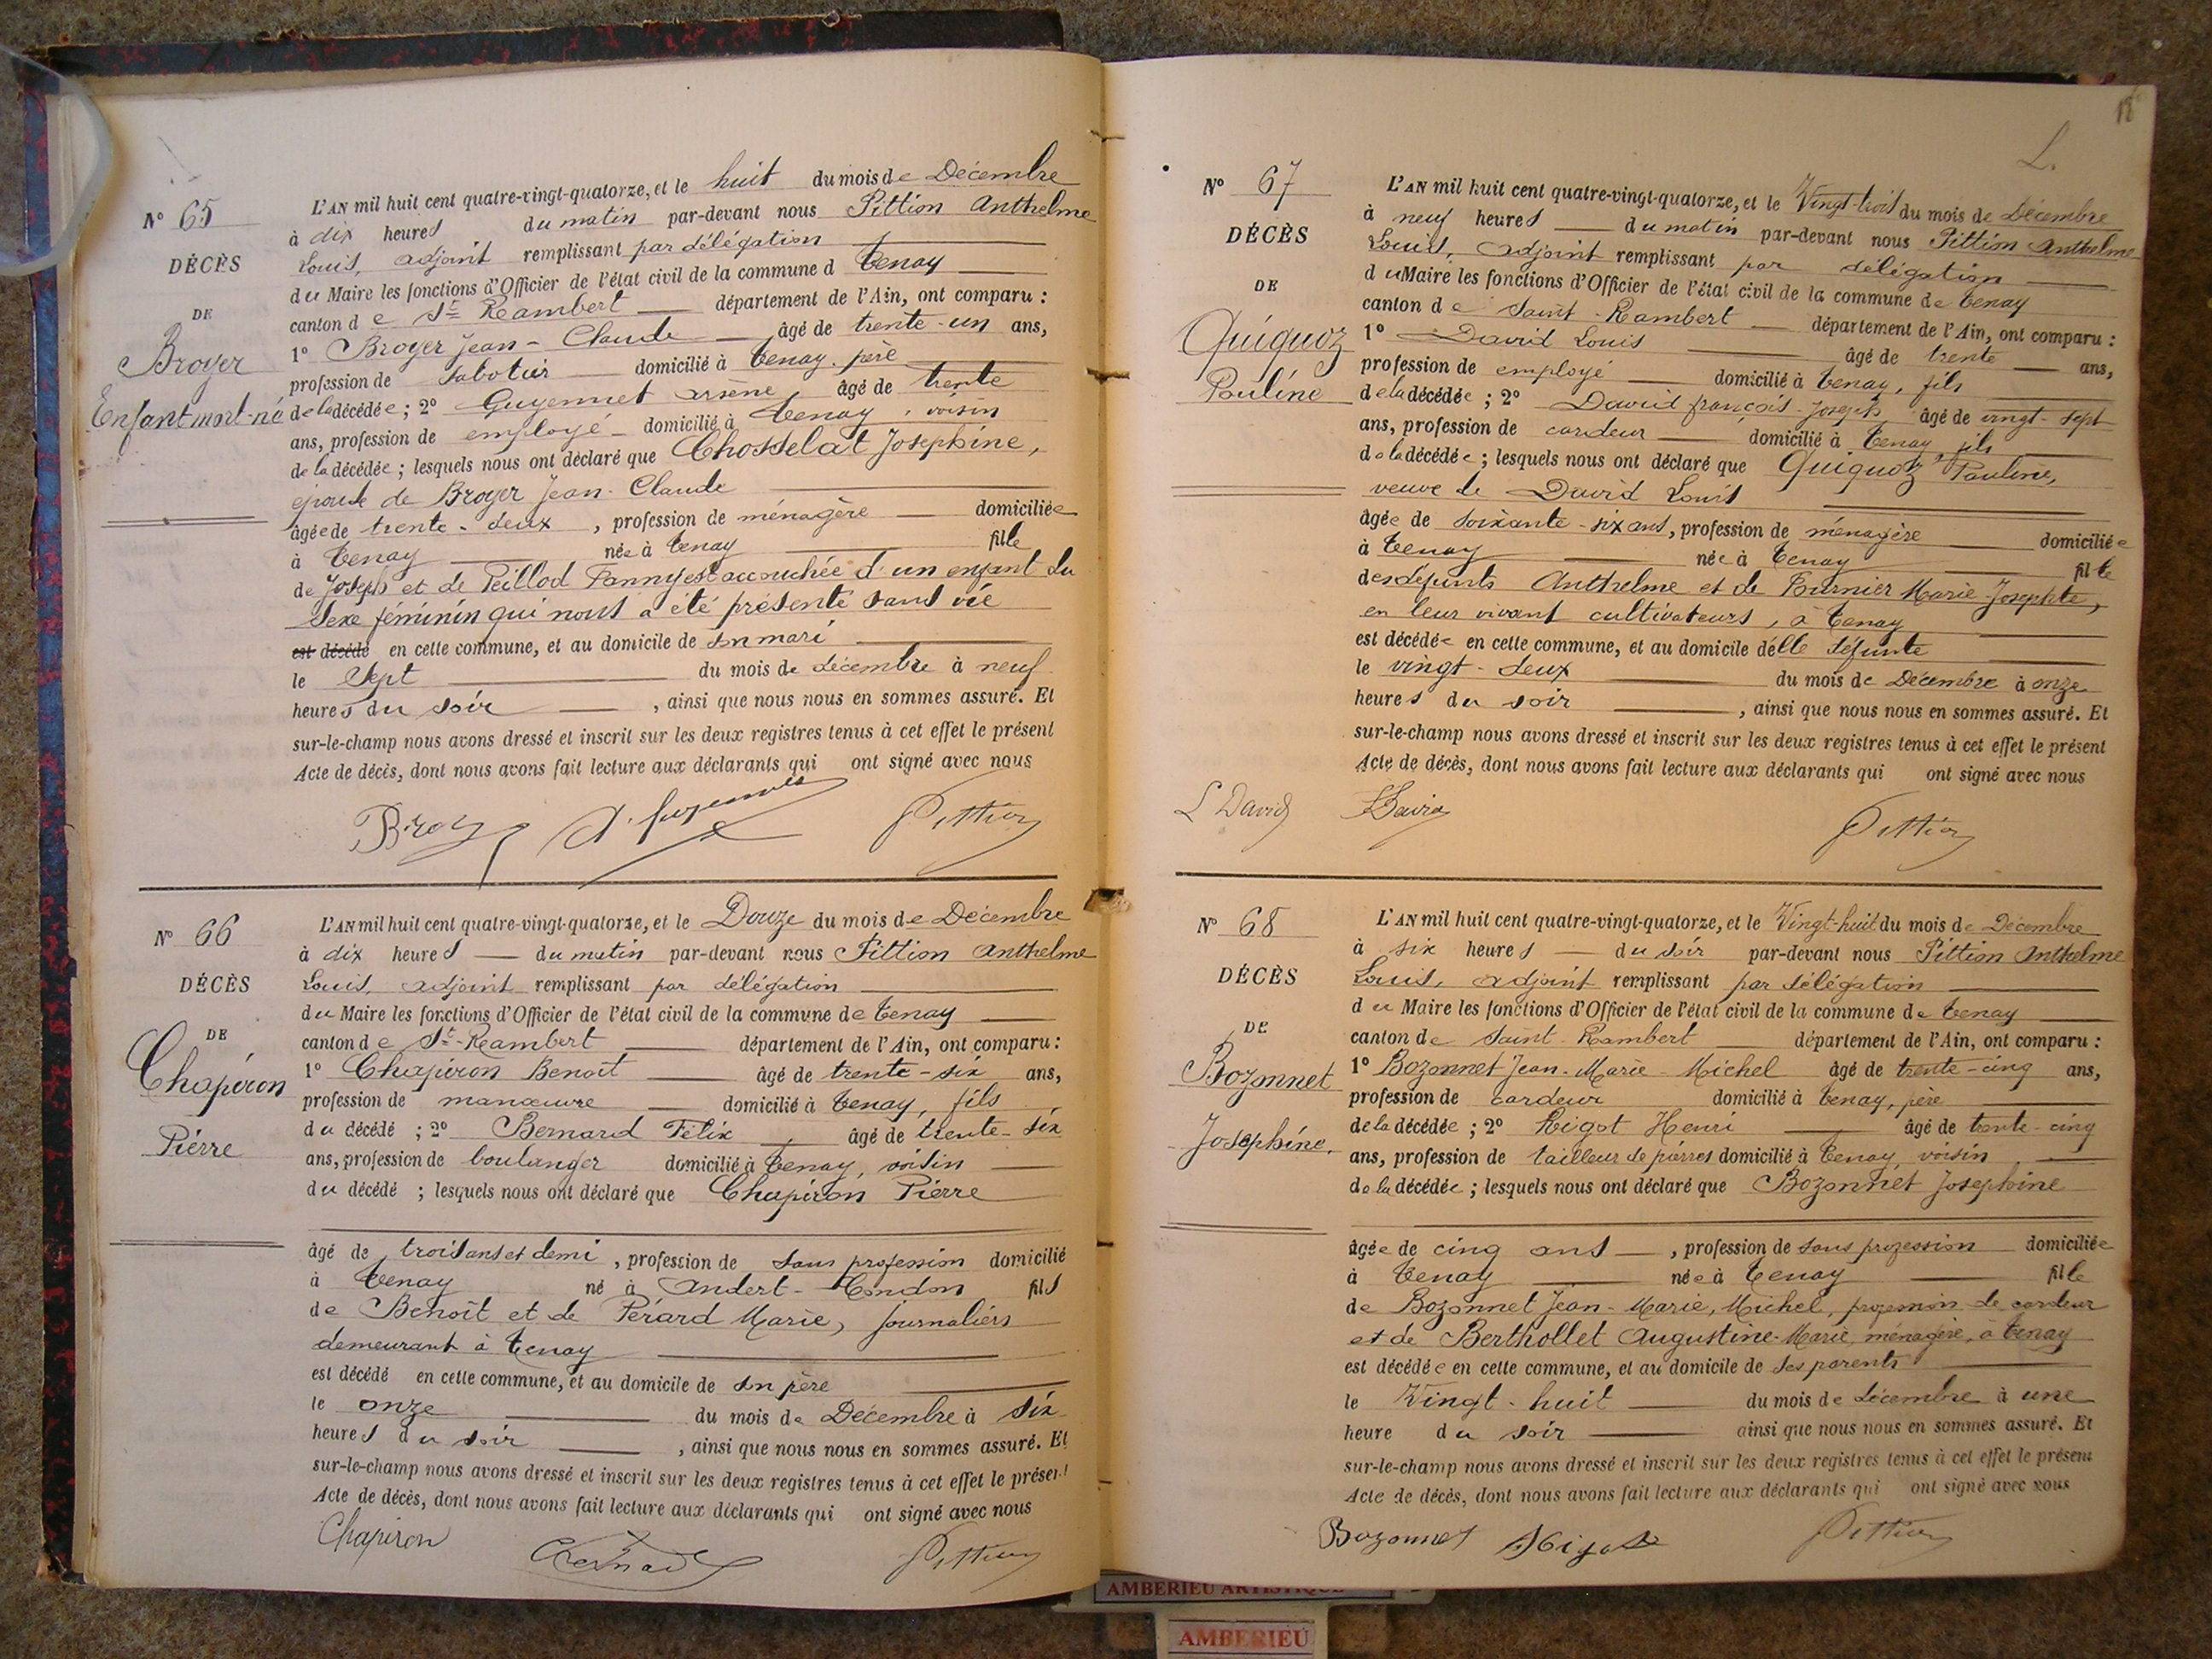 Nº 65
DÉCÈS
DE
Broyer
Enfant mort-né
L'AN mil huit cent quatre-vingt-quatorze, et le huit du mois de Décembre
à dix heures du matin par-devant nous Pittion Anthelme
Louis, adjoint remplissant par délégation
du Maire les fonctions d'Officier de l'état civil de la commune d Tenay
canton de St Rambert département de l'Ain, ont comparu :
1º Broyer Jean-Claude âgé de trente-un ans,
profession de sabotier domicilié à Tenay, père
de la décédée ; 2º Guyennet arsène, âgé de trente
ans, profession de employé domicilié à Tenay, voisin
de la décédée ; lesquels nous ont déclaré que Chosselat Josephine,
épouse de Broyer Jean-Claude
âgée de trente-deux, profession de ménagère domiciliée
à Tenay née à Tenay fille
de Joseph et de Peillod Fanny est accouchée d'un enfant du
sexe féminin qui nous a été présenté sans vie
est décédé en cette commune, et au domicile de son mari
le Sept du mois de décembre à neuf
heures du soir, ainsi que nous nous en sommes assuré. Et
sur-le-champ nous avons dressé et inscrit sur les deux registres tenus à cet effet le présent
Acte de décès, dont nous avons fait lecture aux déclarants qui ont signé avec nous
Broyer A. Guyennet Pittion
Nº 66
DÉCÈS
DE
Chapiron
Pierre
L'AN mil huit cent quatre-vingt-quatorze, et le Douze du mois de Décembre
à dix heures du matin par-devant nous Pittion Anthelme
Louis, adjoint remplissant par délégation
du Maire les fonctions d'Officier de l'état civil de la commune de Tenay
canton de St-Rambert département de l'Ain, ont comparu :
1º Chapiron Benoît âgé de trente-six ans,
profession de manœuvre domicilié à Tenay, fils
du décédé ; 2º Bernard Félix âgé de trente-six
ans, profession de boulanger domicilié à Tenay, voisin
du décédé ; lesquels nous ont déclaré que Chapiron Pierre
âgé de trois ans et demi, profession de sans profession domicilié
à Tenay né à Andert-Condon fils
de Benoît et de Pérard Marie, journaliers
demeurant à Tenay
est décédé en cette commune, et au domicile de son père
le onze du mois de Décembre à six
heures du soir, ainsi que nous nous en sommes assuré. Et
sur-le-champ nous avons dressé et inscrit sur les deux registres tenus à cet effet le présent
Acte de décès, dont nous avons fait lecture aux déclarants qui ont signé avec nous
Chapiron Bernard Pittion
L.
Nº 67
DÉCÈS
DE
Quiquoz
Pauline
L'AN mil huit cent quatre-vingt-quatorze, et le Vingt-trois du mois de Décembre
à neuf heures du matin par-devant nous Pittion Anthelme
Louis, adjoint remplissant par délégation
du Maire les fonctions d'Officier de l'état civil de la commune de Tenay
canton de Saint-Rambert département de l'Ain, ont comparu :
1º David Louis âgé de trente ans,
profession de employé domicilié à Tenay, fils
de la décédée ; 2º David françois-Joseph, âgé de vingt-sept
ans, profession de cardeur domicilié à Tenay, fils
de la décédée ; lesquels nous ont déclaré que Quiquoz Pauline,
veuve de David Louis
âgée de soixante-six ans, profession de ménagère domiciliée
à Tenay née à Tenay fille
des défunts Anthelme et de Burnier Marie-Josephte,
en leur vivant cultivateurs, à Tenay
est décédée en cette commune, et au domicile d'elle défunte
le vingt-deux du mois de Décembre à onze
heures du soir, ainsi que nous nous en sommes assuré. Et
sur-le-champ nous avons dressé et inscrit sur les deux registres tenus à cet effet le présent
Acte de décès, dont nous avons fait lecture aux déclarants qui ont signé avec nous
L David David Pittion
Nº 68
DÉCÈS
DE
Bozonnet
Josephine.
L'AN mil huit cent quatre-vingt-quatorze, et le Vingt-huit du mois de Décembre
à six heures du soir par-devant nous Pittion Anthelme
Louis, adjoint remplissant par délégation
du Maire les fonctions d'Officier de l'état civil de la commune de Tenay
canton de Saint-Rambert département de l'Ain, ont comparu :
1º Bozonnet Jean-Marie-Michel âgé de trente-cinq ans,
profession de cardeur domicilié à Tenay, père
de la décédée ; 2º Higot Henri âgé de trente-cinq
ans, profession de tailleur de pierres domicilié à Tenay, voisin
de la décédée ; lesquels nous ont déclaré que Bozonnet Josephine
âgée de cinq ans, profession de sans profession domiciliée
à Tenay née à Tenay fille
de Bozonnet Jean-Marie, Michel, profession de cardeur
et de Berthollet Augustine-Marie, ménagère, à Tenay
est décédée en cette commune, et au domicile de ses parents
le Vingt-huit du mois de décembre à une
heure du soir ainsi que nous nous en sommes assuré. Et
sur-le-champ nous avons dressé et inscrit sur les deux registres tenus à cet effet le présent
Acte de décès, dont nous avons fait lecture aux déclarants qui ont signé avec nous
Bozonnet Higot Pittion
AMBERIEU ARTISTIQUE
AMBERIEU